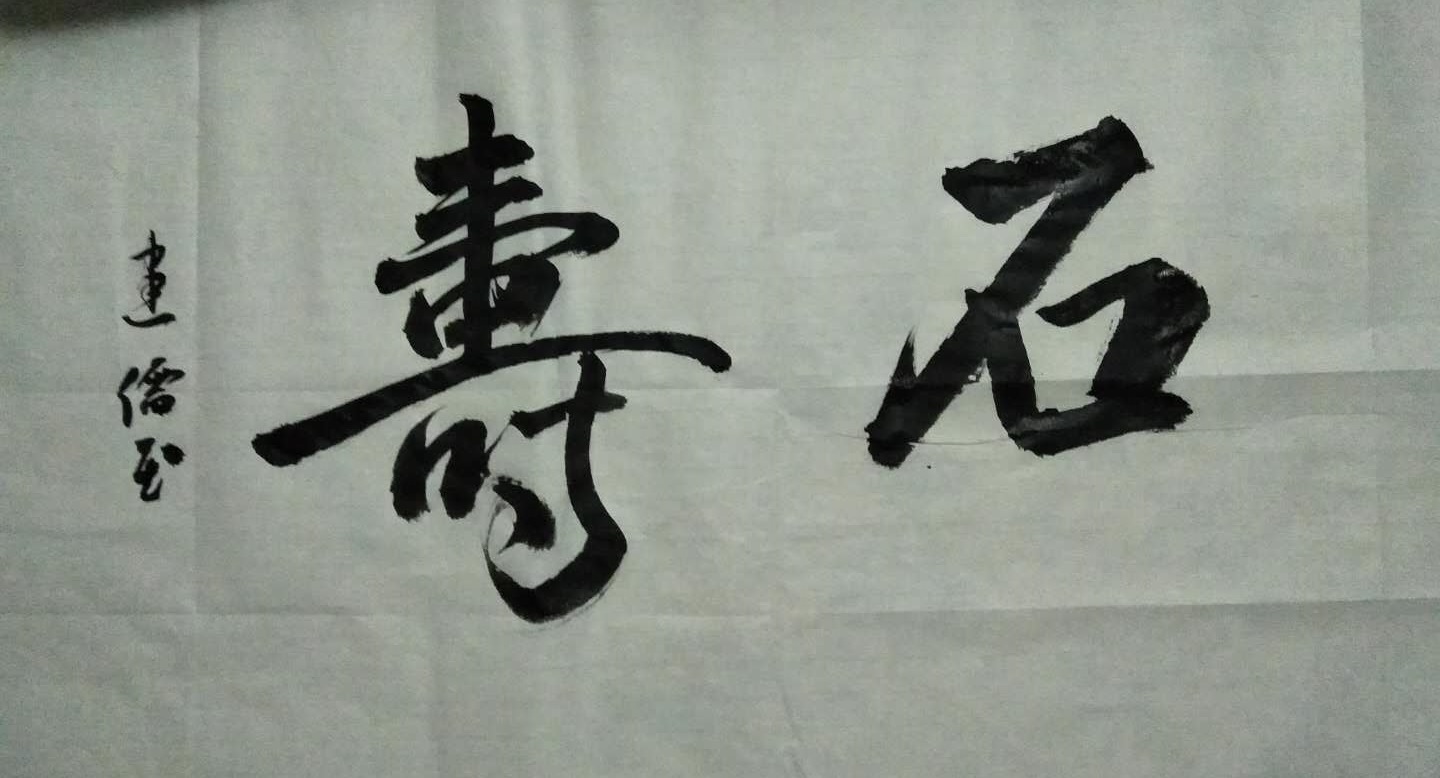 石壽
建儒